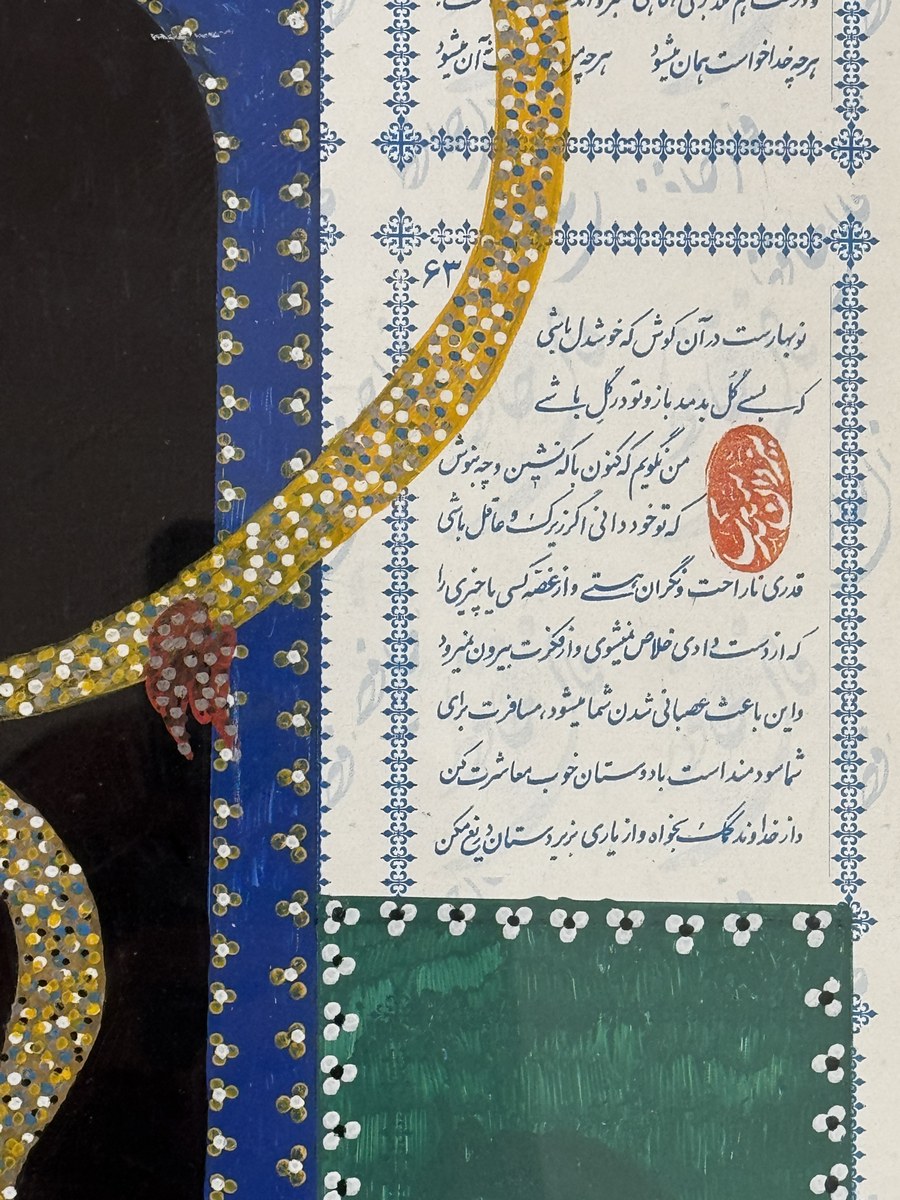 هرچه خدا خواست همان میشود هرچه آن میشود
۶۳
نوبهارست در آن کوش که خوشدل باشی
که بسی گُل بدمد باز و تو در گِل باشی
من نگویم که کنون با که نشین و چه بنوش
که تو خود دانی اگر زیرک و عاقل باشی
قدری ناراحت و نگران هستی و از غصّه کسی یا چیزی را
که از دست دادی خلاص نمیشوی و از فکرت بیرون نمیرود
و این باعث عصبانی شدن شما میشود، مسافرت برای
شما سودمند است با دوستان خوب معاشرت کن
و از خداوند کمک بخواه و از یاری بزیردستان دریغ مکن